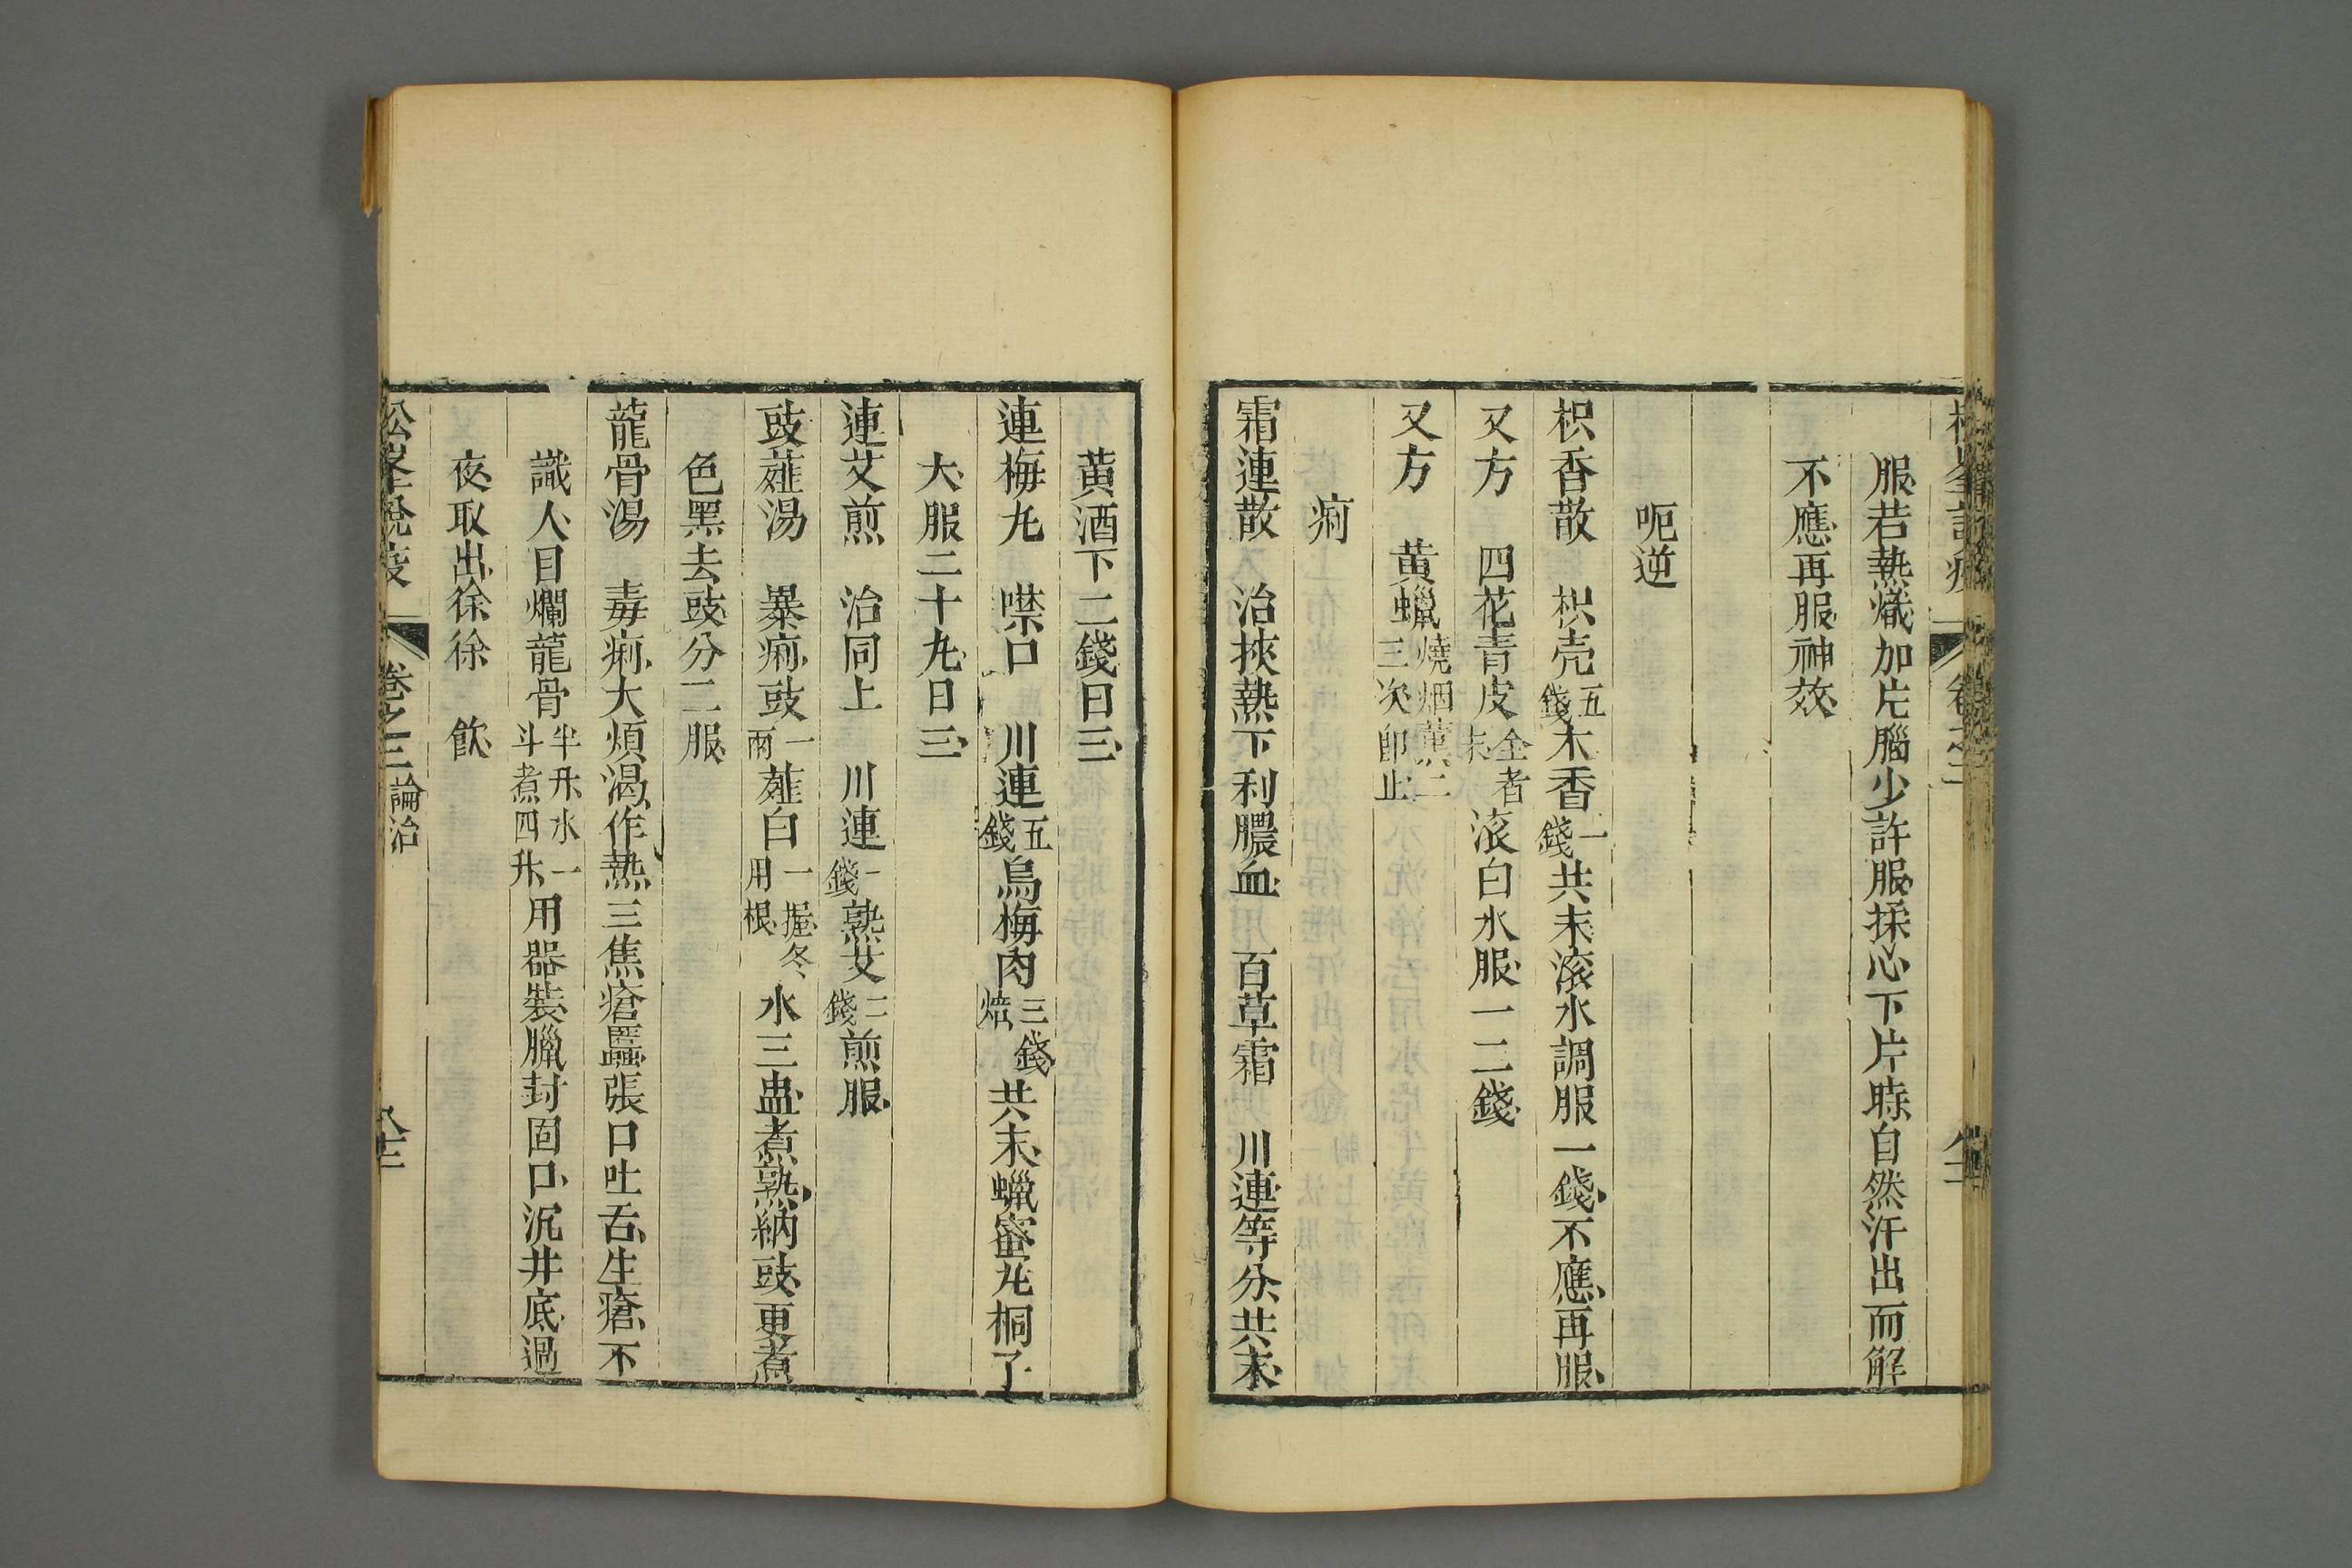 服若熱熾加片腦少許服揉心下片時自然汗出而解
不應再服神效
呃逆
枳香散　枳壳五錢木香一錢共末滚水調服一錢不應再服
又方　四花青皮全者末滚白水服一二錢
又方　黄蠟燒烟薰二三次即止
痢
霜連散　治挾熱下利膿血　百草霜　川連等分共末
黄酒下二錢日三
連梅丸　噤口　川連五錢烏梅肉三錢焙共末蠟蜜丸桐子
大服二十丸日三
連艾煎　治同上　川連一錢熟艾二錢煎服
豉薤湯　暴痢豉一兩薤白一握冬用根水三盅煮熟納豉更煮
色黑去豉分二服
龍骨湯　毒痢大煩渴作熱三焦瘡䘌張口吐舌生瘡不
識人目爛龍骨半升水一斗煮四升用器裝臘封固口沉井底過
夜取出徐徐　飲
松峯說疫　卷之三論治　八十三